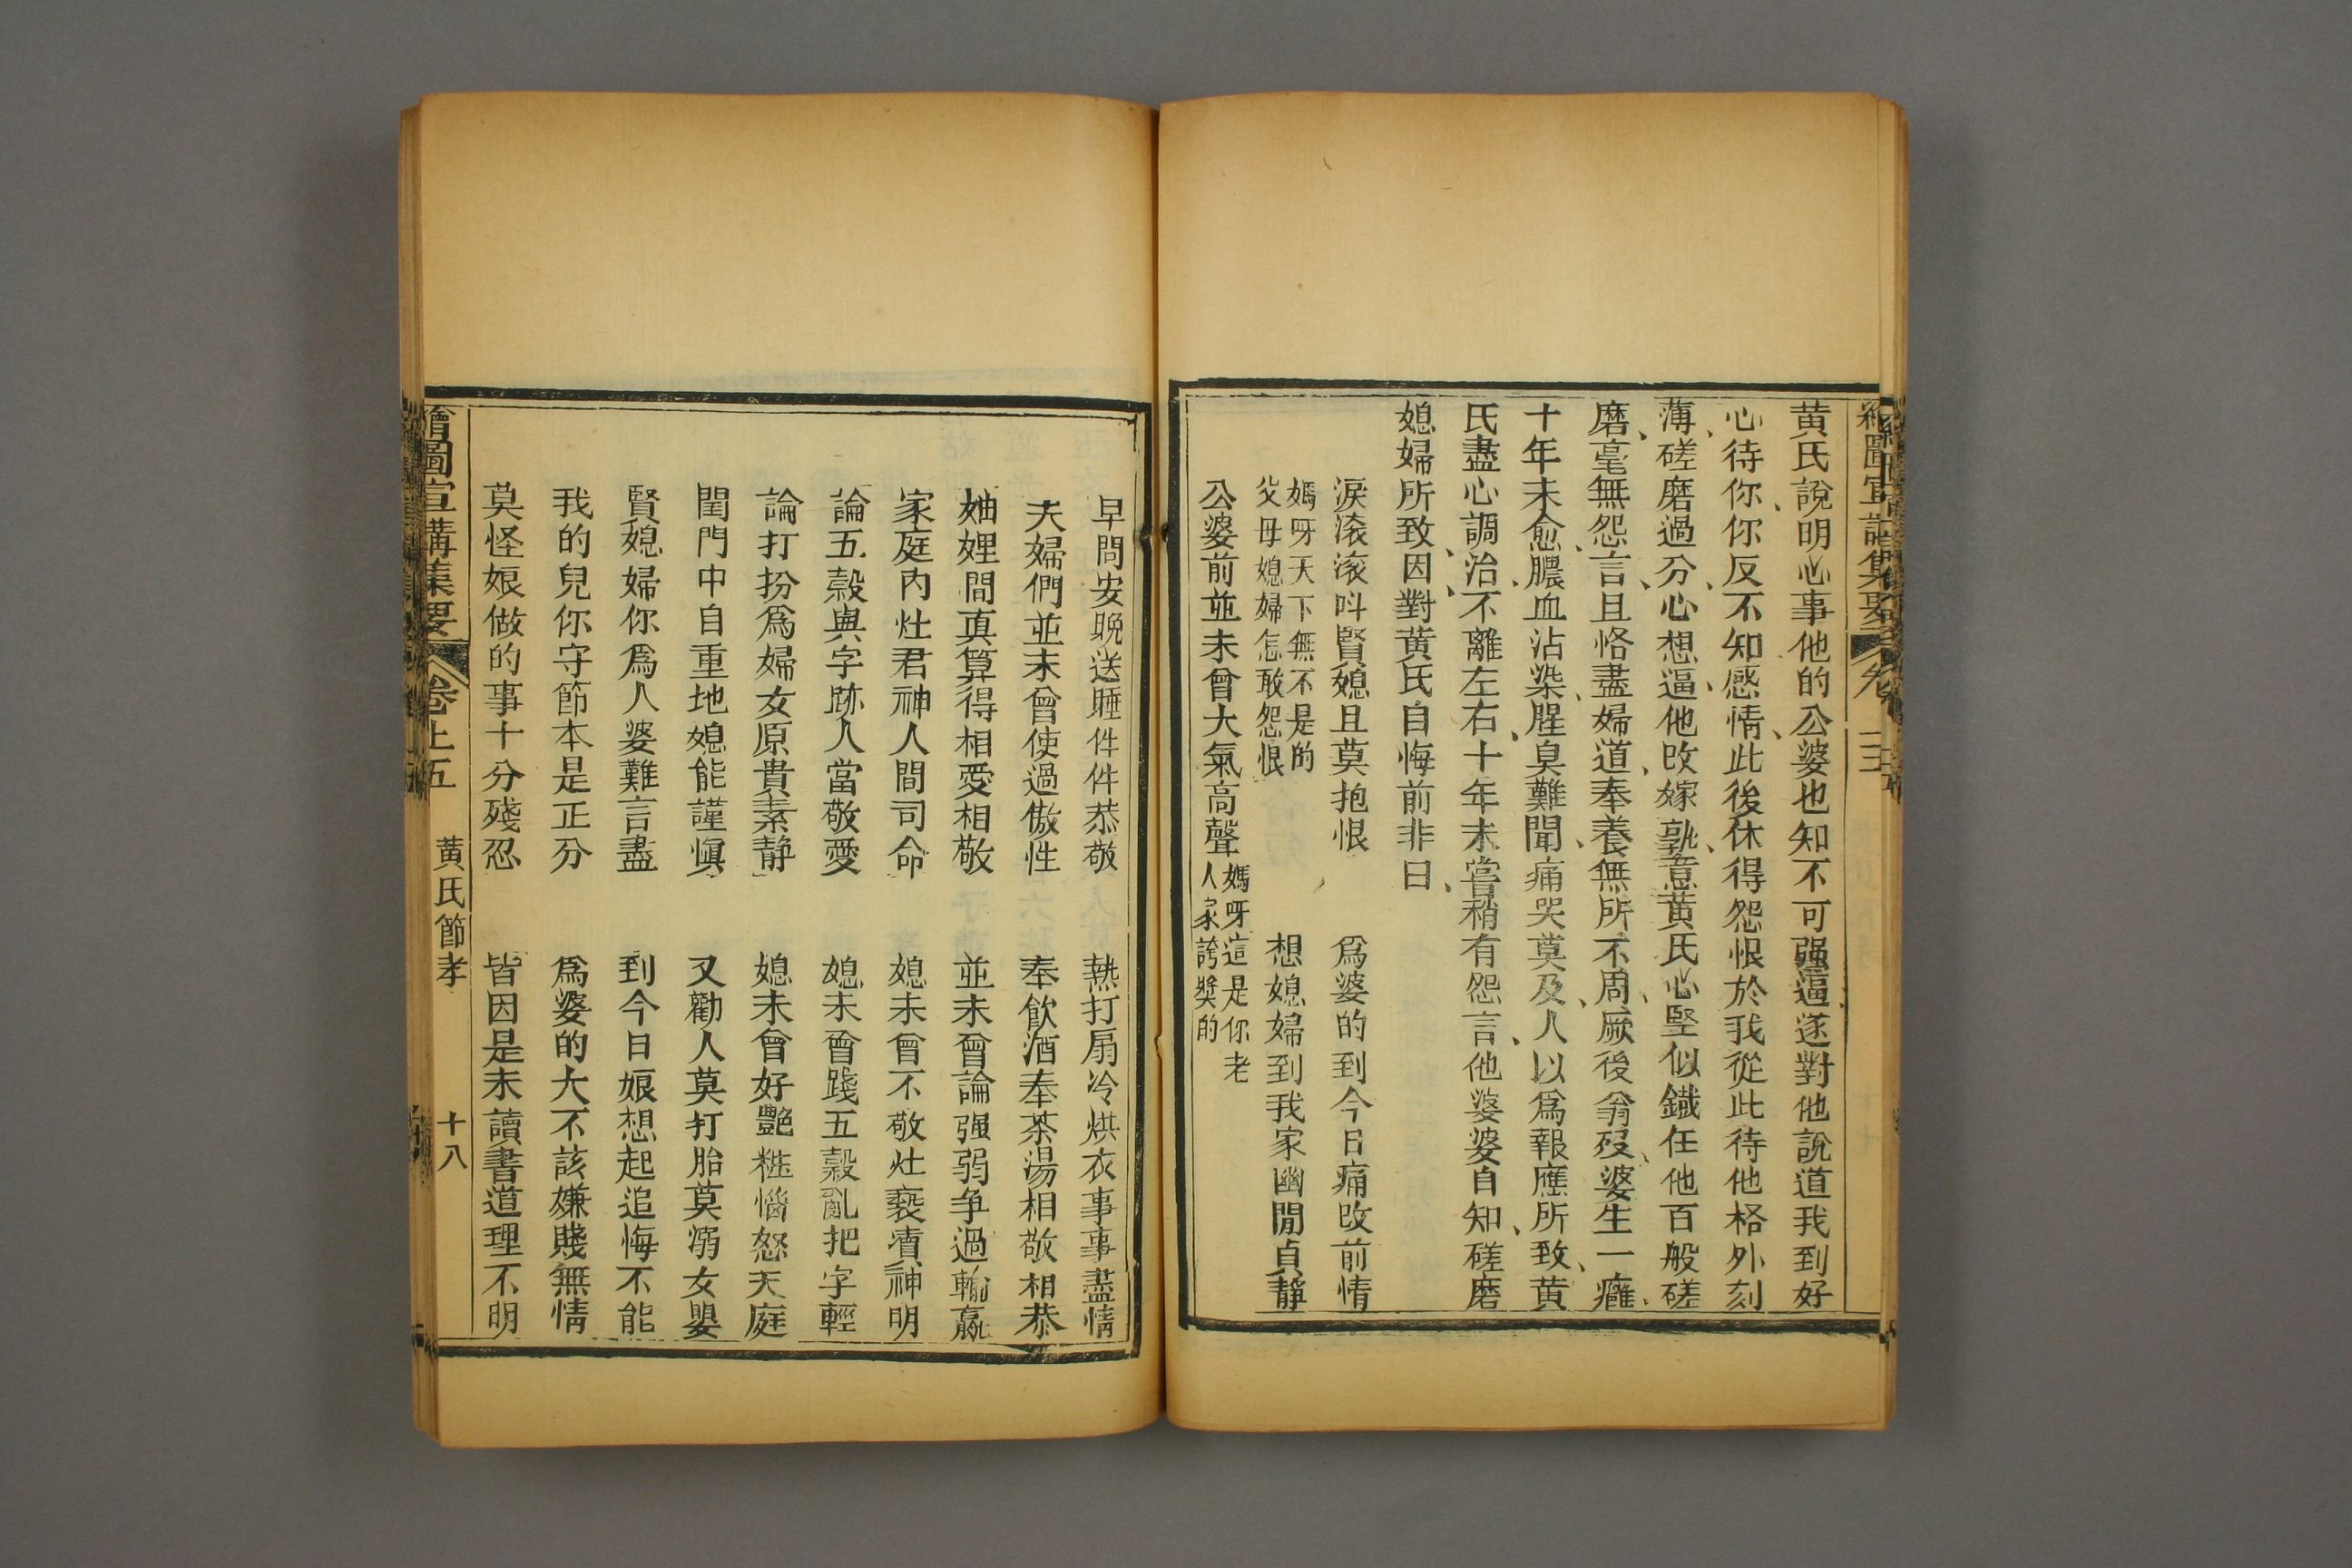 黃氏說明心事他的公婆也知不可强逼遂對他說道我到好
心待你你反不知感情此後休得怨恨於我從此待他格外刻
薄磋磨過分心想逼他改嫁孰意黃氏心堅似鐵任他百般磋
磨毫無怨言且恪盡婦道奉養無所不周厥後翁歿婆生一癰
十年未愈膿血沾染腥臭難聞痛哭莫及人以爲報應所致黃
氏盡心調治不離左右十年未嘗稍有怨言他婆婆自知磋磨
媳婦所致因對黃氏自悔前非曰
淚滚滚呌賢媳且莫抱恨 爲婆的到今日痛改前情
媽呀天下無不是的
父母媳婦怎敢怨恨 想媳婦到我家幽閒貞靜
公婆前並未曾大氣高聲 媽呀這是你老
人家誇獎的
早問安晚送睡件件恭敬 熱打扇冷烘衣事事盡情
夫婦們並未曾使過傲性 奉飲酒奉茶湯相敬相恭
妯娌間真算得相愛相敬 並未曾論强弱争過輸贏
家庭内灶君神人間司命 媳未曾不敬灶褻瀆神明
論五穀與字跡人當敬愛 媳未曾踐五穀亂把字輕
論打扮爲婦女原貴素靜 媳未曾好艷粧惱怒天庭
閨門中自重地媳能謹愼 又勸人莫打胎莫溺女嬰
賢媳婦你爲人婆難言盡 到今日娘想起追悔不能
我的兒你守節本是正分 爲婆的大不該嫌賤無情
莫怪娘做的事十分殘忍 皆因是未讀書道理不明
繪圖宣講集要 卷上五 黃氏節孝 十八